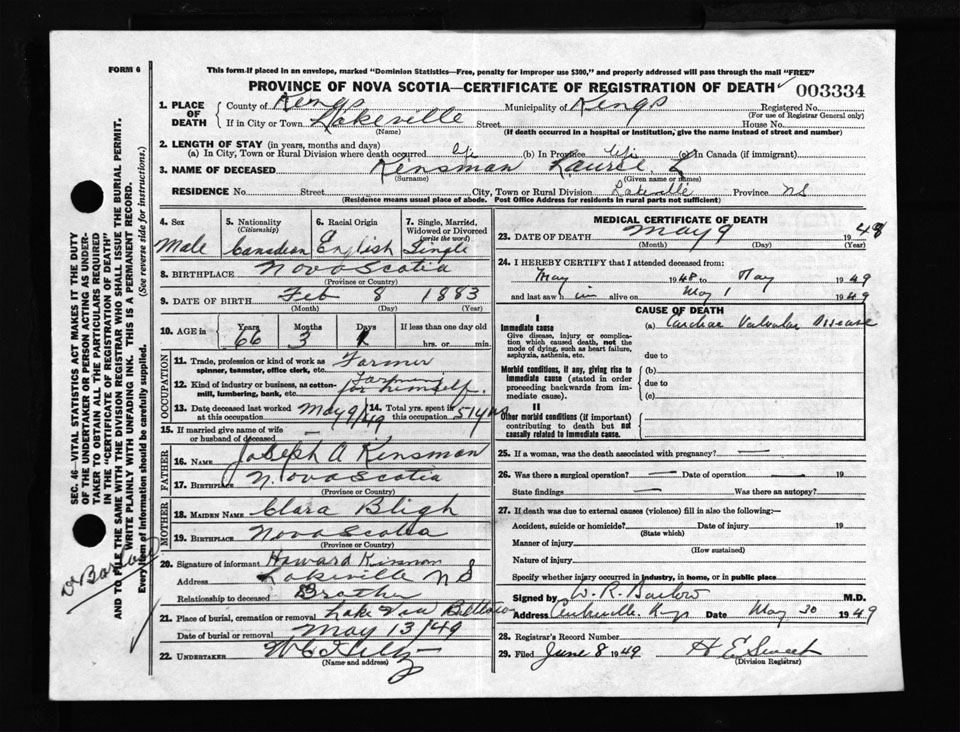 FORM 6
This form if placed in an envelope, marked "Dominion Statistics—Free, penalty for improper use $300," and properly addressed will pass through the mail "FREE"
PROVINCE OF NOVA SCOTIA—CERTIFICATE OF REGISTRATION OF DEATH 003334
1. PLACE OF DEATH
County of Kings Municipality of Kings Registered No.
(For use of Registrar General only)
If in City or Town Lakeville Street House No.
(Name) (If death occurred in a hospital or institution, give the name instead of street and number)
2. LENGTH OF STAY (in years, months and days)
(a) In City, Town or Rural Division where death occurred (b) In Province (c) In Canada (if immigrant)
3. NAME OF DECEASED Kinsman Laurie
(Surname) (Given name or names)
RESIDENCE No. Street City, Town or Rural Division Lakeville Province NS
(Residence means usual place of abode. Post Office Address for residents in rural parts not sufficient)
4. Sex 5. Nationality (Citizenship) 6. Racial Origin 7. Single, Married, Widowed or Divorced (write the word)
Male Canadian English Single
8. BIRTHPLACE Nova Scotia
(Province or Country)
9. DATE OF BIRTH Feb 8 1883
(Month) (Day) (Year)
10. AGE in Years Months Days If less than one day old
66 3 1 hrs. or min.
OCCUPATION
11. Trade, profession or kind of work as spinner, teamster, office clerk, etc. Farmer
12. Kind of industry or business, as cotton-mill, lumbering, bank, etc. farming for himself.
13. Date deceased last worked at this occupation May 9/49 14. Total yrs. spent in this occupation 51 yrs
15. If married give name of wife or husband of deceased —
FATHER
16. NAME Joseph A Kinsman
17. BIRTHPLACE Nova Scotia
(Province or Country)
MOTHER
18. MAIDEN NAME Clara Bligh
19. BIRTHPLACE Nova Scotia
(Province or Country)
20. Signature of informant Howard Kinsman
Address Lakeville NS
Relationship to deceased Brother
21. Place of burial, cremation or removal Lake View
Date of burial or removal May 13/49
22. UNDERTAKER
(Name and address)
MEDICAL CERTIFICATE OF DEATH
23. DATE OF DEATH May 9 1949
(Month) (Day) (Year)
24. I HEREBY CERTIFY that I attended deceased from:
May 1948 to May 1949
and last saw h im alive on May 1 1949
CAUSE OF DEATH
I
Immediate cause (a) Cardiac Valvular Disease
Give disease, injury or complication which caused death, not the mode of dying, such as heart failure, asphyxia, asthenia, etc.
due to
Morbid conditions, if any, giving rise to immediate cause (stated in order proceeding backwards from immediate cause).
(b)
due to
(c)
II
Other morbid conditions (if important) contributing to death but not causally related to immediate cause.
25. If a woman, was the death associated with pregnancy? —
26. Was there a surgical operation? — Date of operation 19
State findings — Was there an autopsy?
27. If death was due to external causes (violence) fill in also the following:—
Accident, suicide or homicide? Date of injury 19
(State which)
Manner of injury
(How sustained)
Nature of injury
Specify whether injury occurred in industry, in home, or in public place
Signed by W. R. Barlow M.D.
Address Centreville Kings Date May 30 1949
28. Registrar's Record Number
29. Filed June 8 1949 H E Sweet
(Division Registrar)
SEC. 46—VITAL STATISTICS ACT MAKES IT THE DUTY
OF THE UNDERTAKER OR PERSON ACTING AS UNDER-
TAKER TO OBTAIN ALL THE PARTICULARS REQUIRED
IN THE "CERTIFICATE OF REGISTRATION OF DEATH"
AND TO FILE THE SAME WITH THE DIVISION REGISTRAR WHO SHALL ISSUE THE BURIAL PERMIT.
WRITE PLAINLY WITH UNFADING INK. THIS IS A PERMANENT RECORD.
Every item of information should be carefully supplied. (See reverse side for instructions.)
Dr Barlow